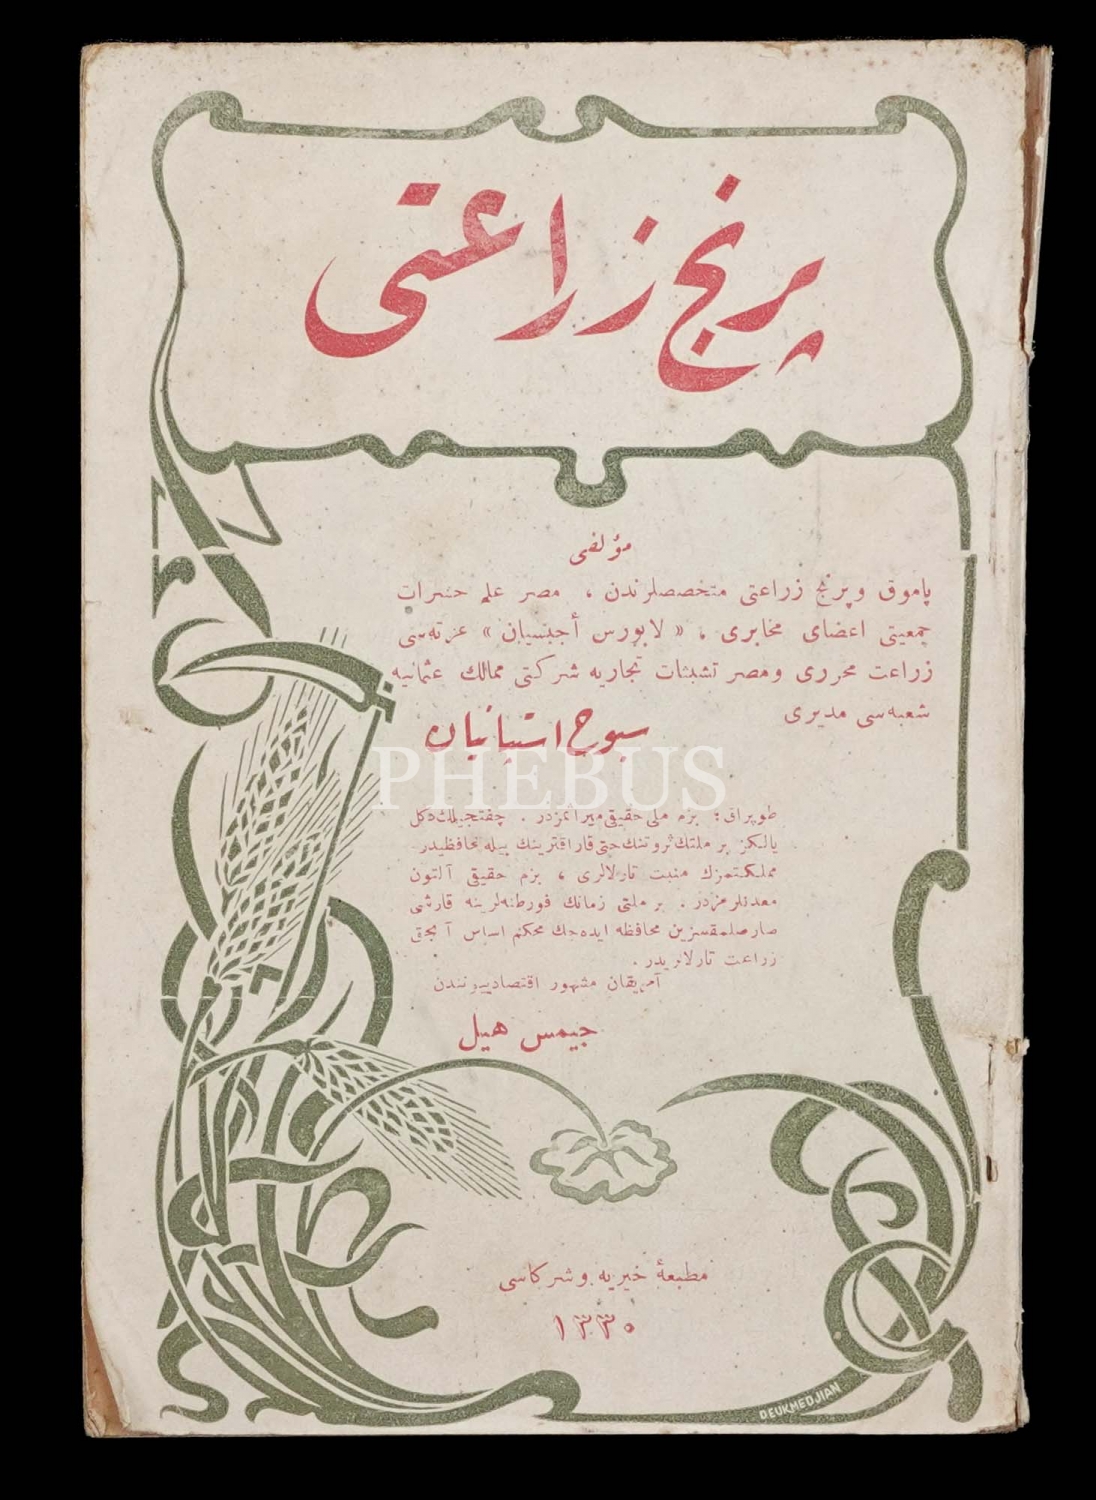 پرنج زراعتى
مؤلفى
پاموق و پرنج زراعتى متخصصلرندن ، مصر علم حشرات
جمعيتى اعضاى مخابرى ، « لابورس أجبسيان » غزته‌سى
زراعت محررى و مصر تشبثات تجاريه شركتى ممالك عثمانيه
شعبه‌سى مديرى
سبوح استپانيان
PHEBUS
طوپراق : بزم ملى حقيقى ميراثمزدر . چفتجيلك دكل
يالكز بر ملتك ثروتنك حتى قاراقترينك بيله محافظيدر
مملكتمزك منبت تارلالرى ، بزم حقيقى آلتون
معدنلرمزدر . بر ملتى زمانك فورطنه‌لرينه قارشى
صارصلمقسزين محافظه ايده‌جك محكم اساس آنجق
زراعت تارلالريدر .
آمريقان مشهور اقتصاديوننندن
جيمس هيل
مطبعهٔ خيريه و شركاسى
١٣٣٠
DEUKMEDJIAN